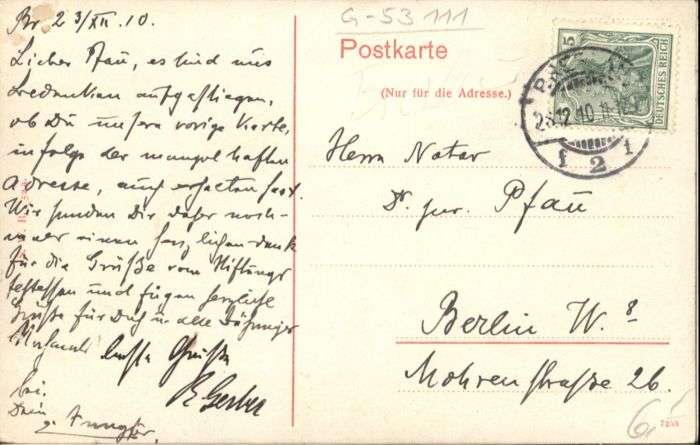 Br 23/XII. 10.
Lieber Pfau, es sind uns
Bedenken aufgestiegen,
ob Du unsere vorige Karte,
infolge der mangelhaften
Adresse, auch erhalten hast.
Wir senden Dir daher noch-
mals einen herzlichen Dank
für die Grüße vom Stiftungs
festessen und fügen herzliche
Grüße für Dich u. alle
beste Grüße
Dein
G-53111
Postkarte
(Nur für die Adresse.)
DEUTSCHES REICH
5
12.10
1 2 1
Herrn Notar
Dr. jur. Pfau
Berlin W. 8
Mohrenstraße 26.